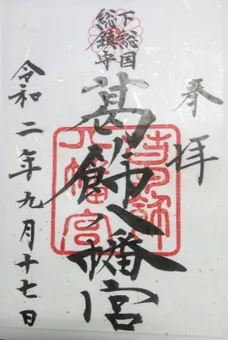 奉拝
下総国
総鎮守
葛飾八幡宮
令和二年九月十七日
葛飾
八幡宮